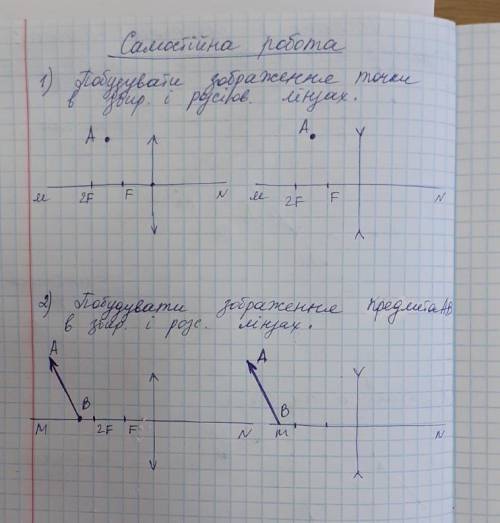 Самостійна робота
1) Побудувати зображення точки
в збир. і розсіюв. лінзах.
A A
M 2F F N M 2F F N
2) Побудувати зображення предмета AB
в збир. і розс. лінзах.
A A
B B
M 2F F N M N